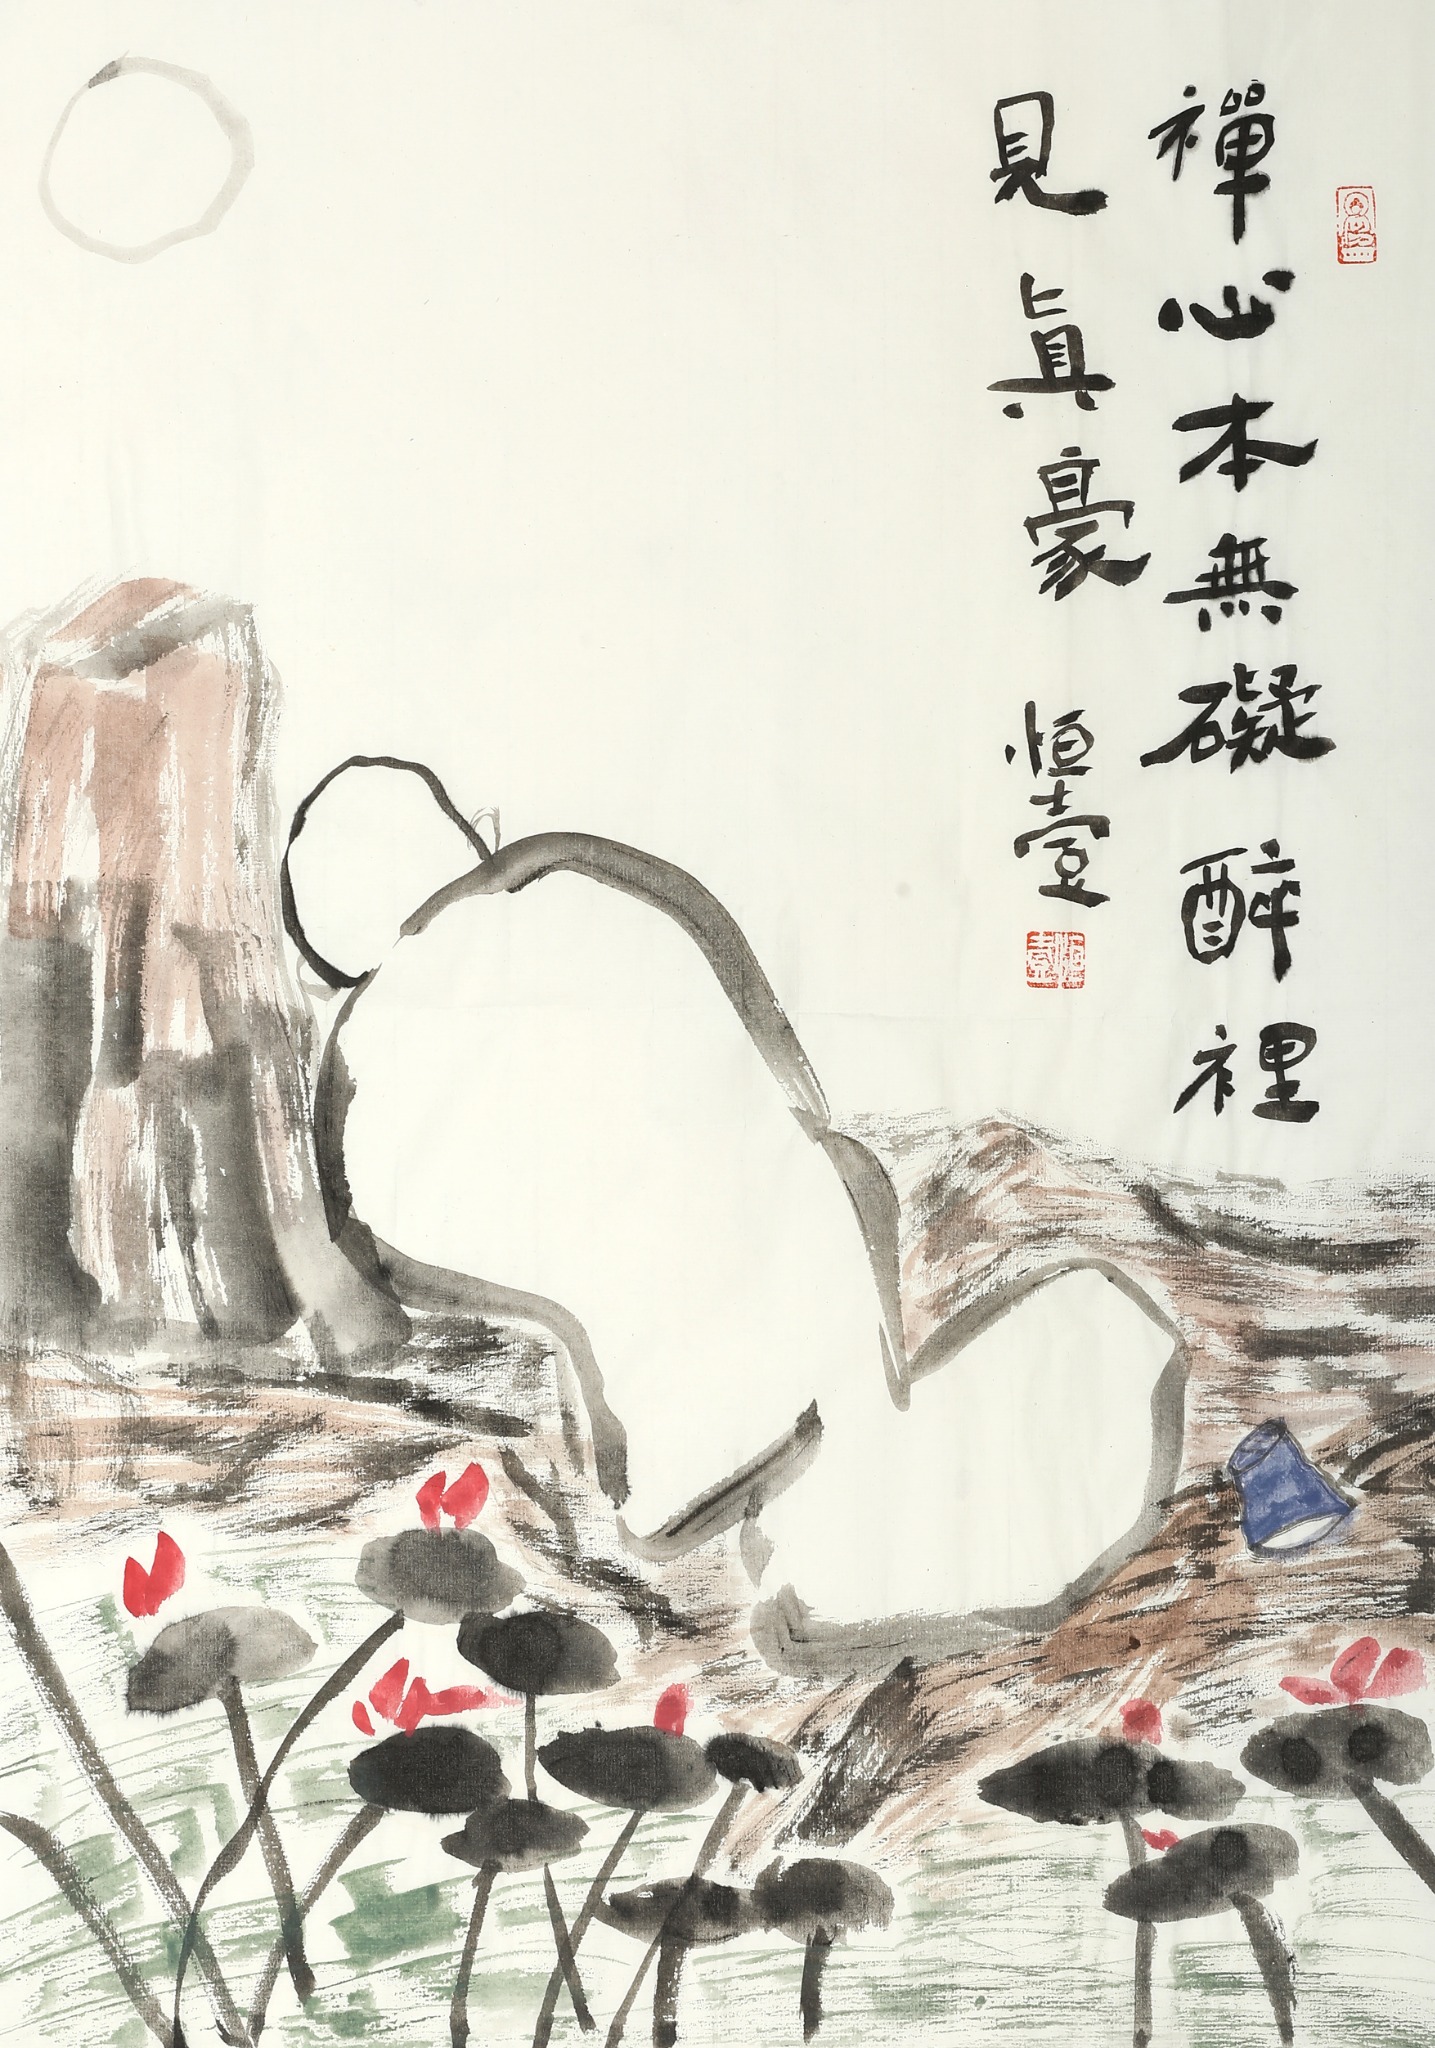 禪心本無礙醉裡
見真豪
恒壹
恒壹